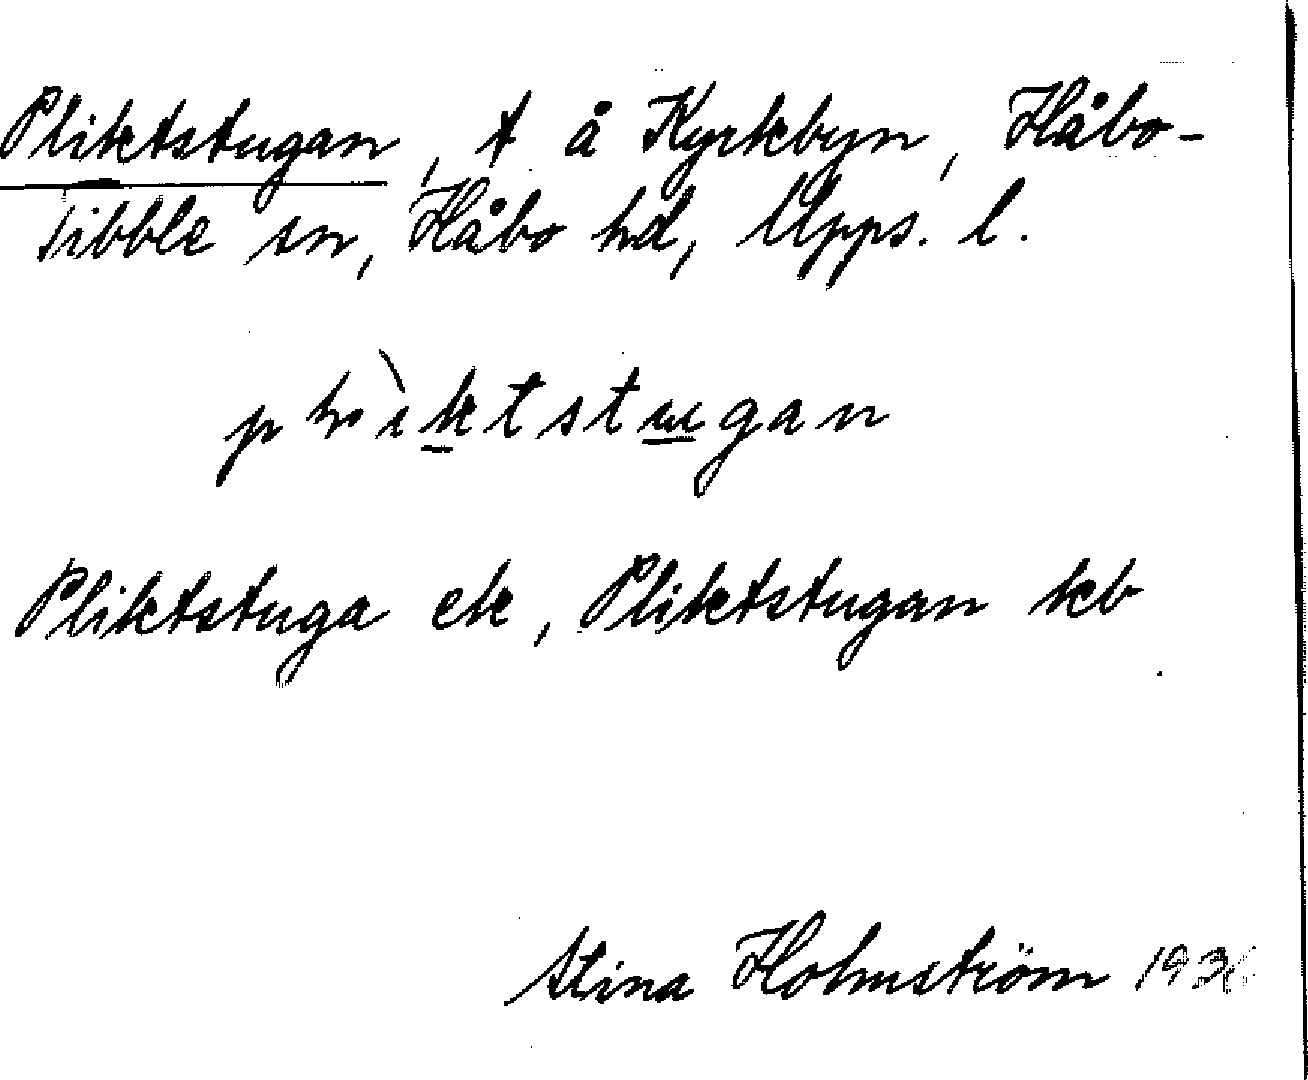 Pliktstugan, t å Kyrkbyn, Håbo-
Tibble sn, Håbo hd, Upps. l.
Pliktstuga ek, Pliktstugan kb
Stina Holmström